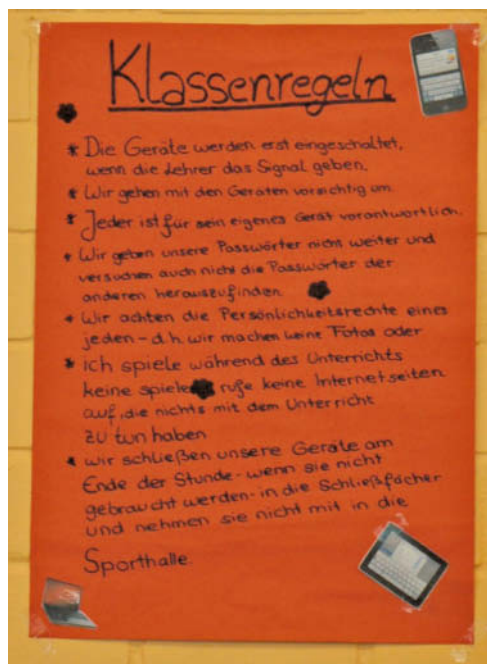 Klassenregeln
* Die Geräte werden erst eingeschaltet,
wenn die Lehrer das Signal geben.
* Wir gehen mit den Geräten vorsichtig um.
* Jeder ist für sein eigenes Gerät verantwortlich.
* Wir geben unsere Passwörter nicht weiter und
versuchen auch nicht die Passwörter der
anderen herauszufinden.
* Wir achten die Persönlichkeitsrechte eines
jeden - d.h. wir machen keine Fotos oder
* Ich spiele während des Unterrichts
keine spiele rufe keine Internetseiten
auf, die nichts mit dem Unterricht
zu tun haben
* wir schließen unsere Geräte am
Ende der Stunde - wenn sie nicht
gebraucht werden - in die Schließfächer
und nehmen sie nicht mit in die
Sporthalle.